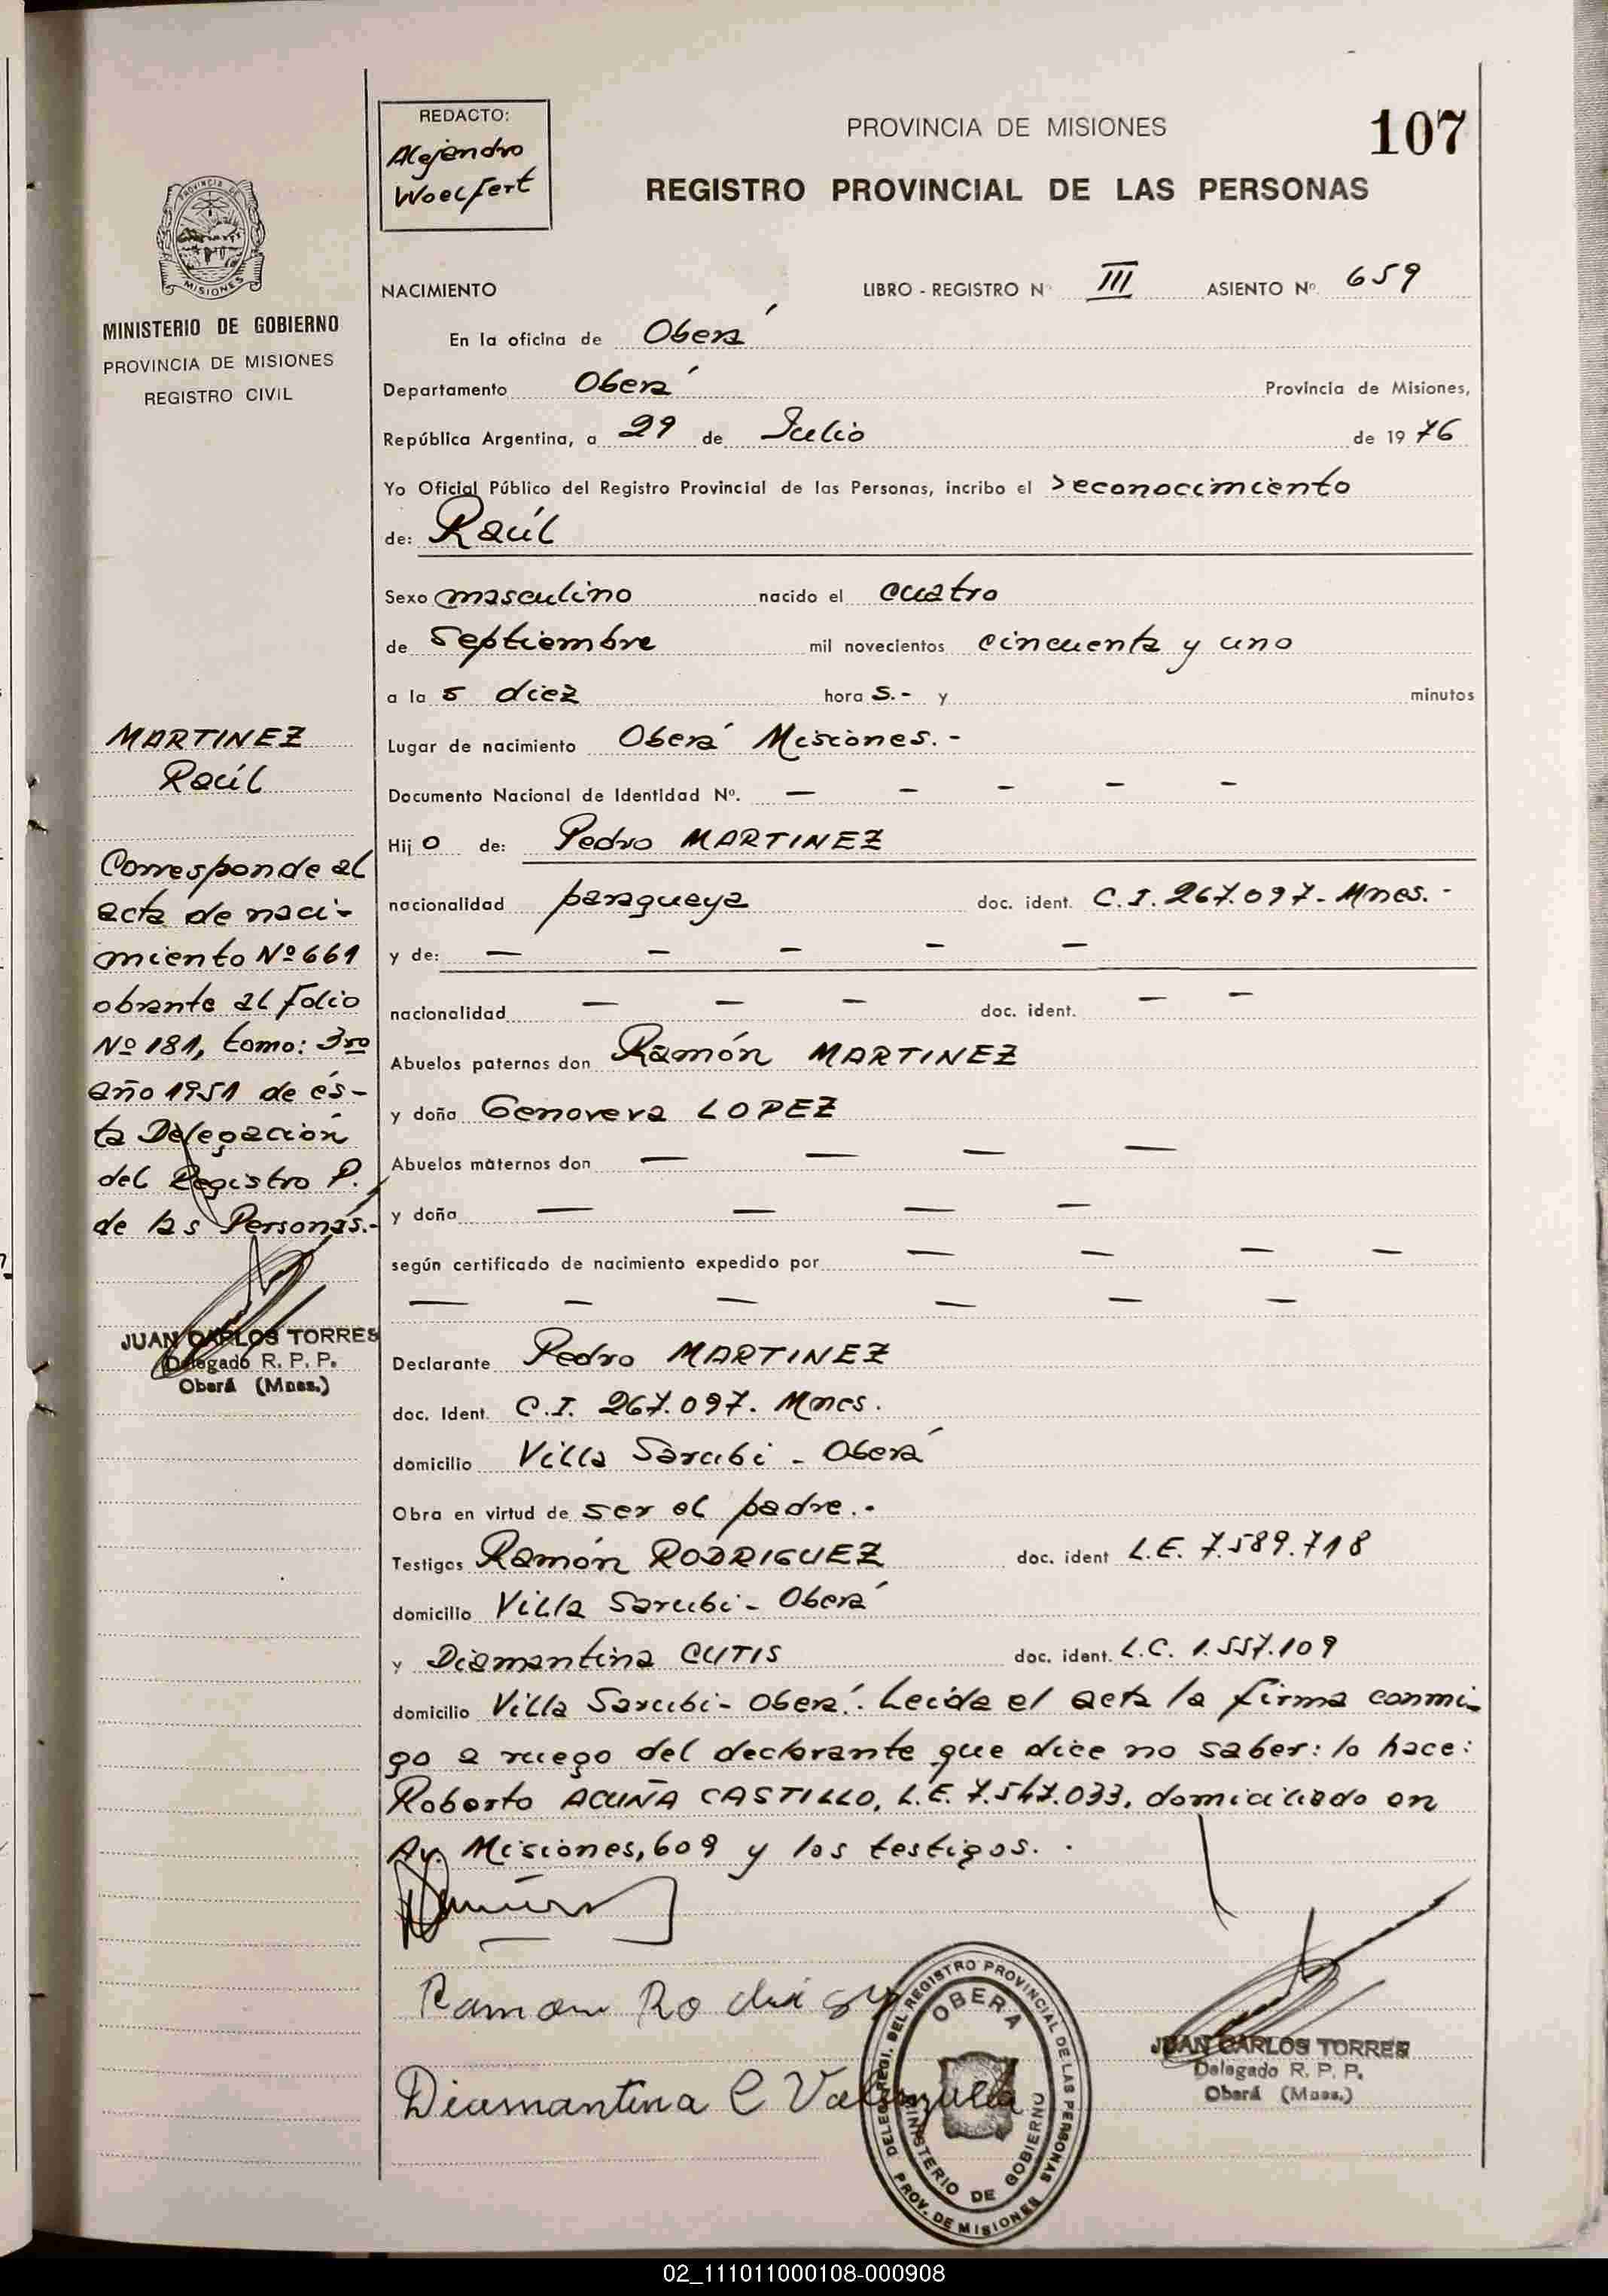 REDACTO:
Alejandro
Woelfert
PROVINCIA DE MISIONES
107
REGISTRO PROVINCIAL DE LAS PERSONAS
PROVINCIA DE
MISIONES
MINISTERIO DE GOBIERNO
PROVINCIA DE MISIONES
REGISTRO CIVIL
NACIMIENTO LIBRO - REGISTRO Nº III ASIENTO Nº 659
En la oficina de Oberá
Departamento Oberá Provincia de Misiones,
República Argentina, a 29 de Julio de 1976
Yo Oficial Público del Registro Provincial de las Personas, incribo el reconocimiento
de: Raúl
Sexo masculino nacido el cuatro
de Septiembre mil novecientos cincuenta y uno
a la s diez hora s.- y minutos
Lugar de nacimiento Oberá Misiones.-
Documento Nacional de Identidad Nº. — — — — —
Hij o de: Pedro MARTINEZ
nacionalidad paraguaya doc. ident. C.I. 267.097.- Mnes.-
y de: — — — — —
nacionalidad — — — doc. ident. — —
Abuelos paternos don Ramón MARTINEZ
y doña Genoveva LOPEZ
Abuelos maternos don — — — —
y doña — — — —
según certificado de nacimiento expedido por — — — —
— — — — — —
Declarante Pedro MARTINEZ
doc. Ident. C.I. 267.097. Mnes.
domicilio Villa Sarubi - Oberá
Obra en virtud de ser el padre.-
Testigos Ramón RODRIGUEZ doc. ident L.E. 7.589.718
domicilio Villa Sarubi - Oberá
y Diamantina CUTIS doc. ident. L.C. 1.557.109
domicilio Villa Sarubi - Oberá. Leída el acta la firma conmi-
go a ruego del declarante que dice no saber: lo hace:
Roberto ACUÑA CASTILLO, L.E. 7.547.033, domiciliado en
Av. Misiones, 609 y los testigos. -
MARTINEZ
Raúl
Corresponde al
acta de naci-
miento Nº 661
obrante al folio
Nº 181, tomo: 3ro
año 1951 de és-
ta Delegación
del Registro P.
de las Personas.-
JUAN CARLOS TORRES
Delegado R. P. P.
Oberá (Mnes.)
Ramon
Diamantina C Valenzuela
DELEG. REGI. DEL REGISTRO PROVINCIAL DE LAS PERSONAS
PROV. DE MISIONES
OBERA
MINISTERIO DE GOBIERNO
JUAN CARLOS TORRES
Delegado R. P. P.
Oberá (Mnes.)
02_111011000108-000908